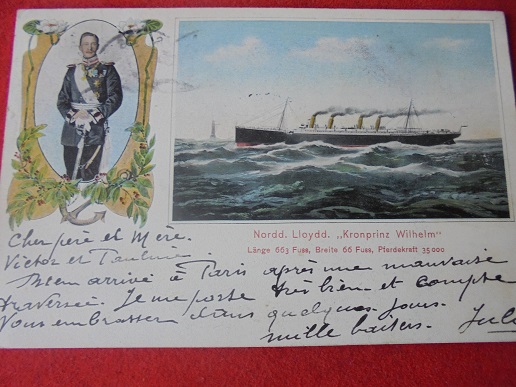 Nordd. Lloydd. „Kronprinz Wilhelm"
Länge 663 Fuss, Breite 66 Fuss, Pferdekraft 35000
Cher père et Mère.
Victor et Pauline
Bien arrivé à Paris après une mauvaise
traversée. Je me porte très bien et compte
vous embrasser dans quelques jours.
mille baisers. Jul